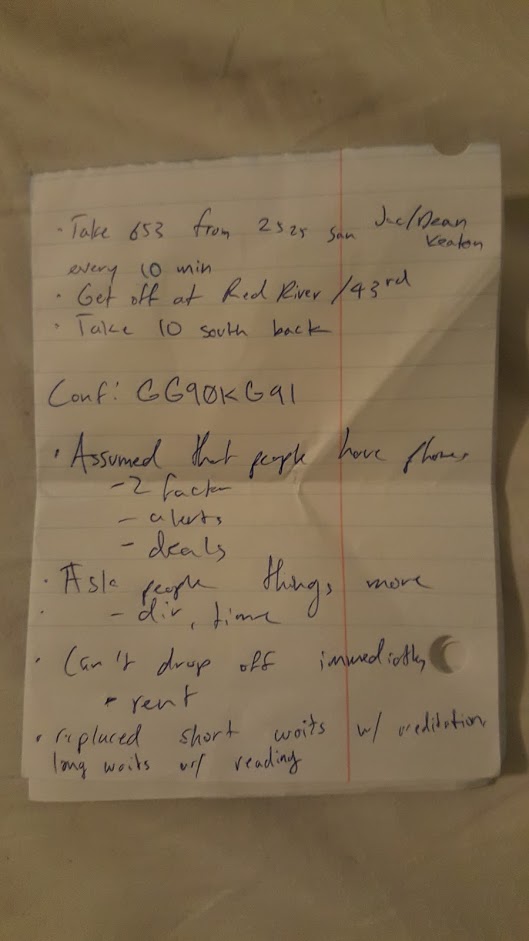 · Take 653 from 2525 San Jac/Dean
Keaton
every 10 min
· Get off at Red River /43rd
· Take 10 south back
Conf: GG90KG91
· Assumed that people have phones
- 2 factor
- alerts
- deals
· Ask people things more
· - dir, time
· Can't drop off immediately
· rent
· replaced short waits w/ meditation
long waits w/ reading